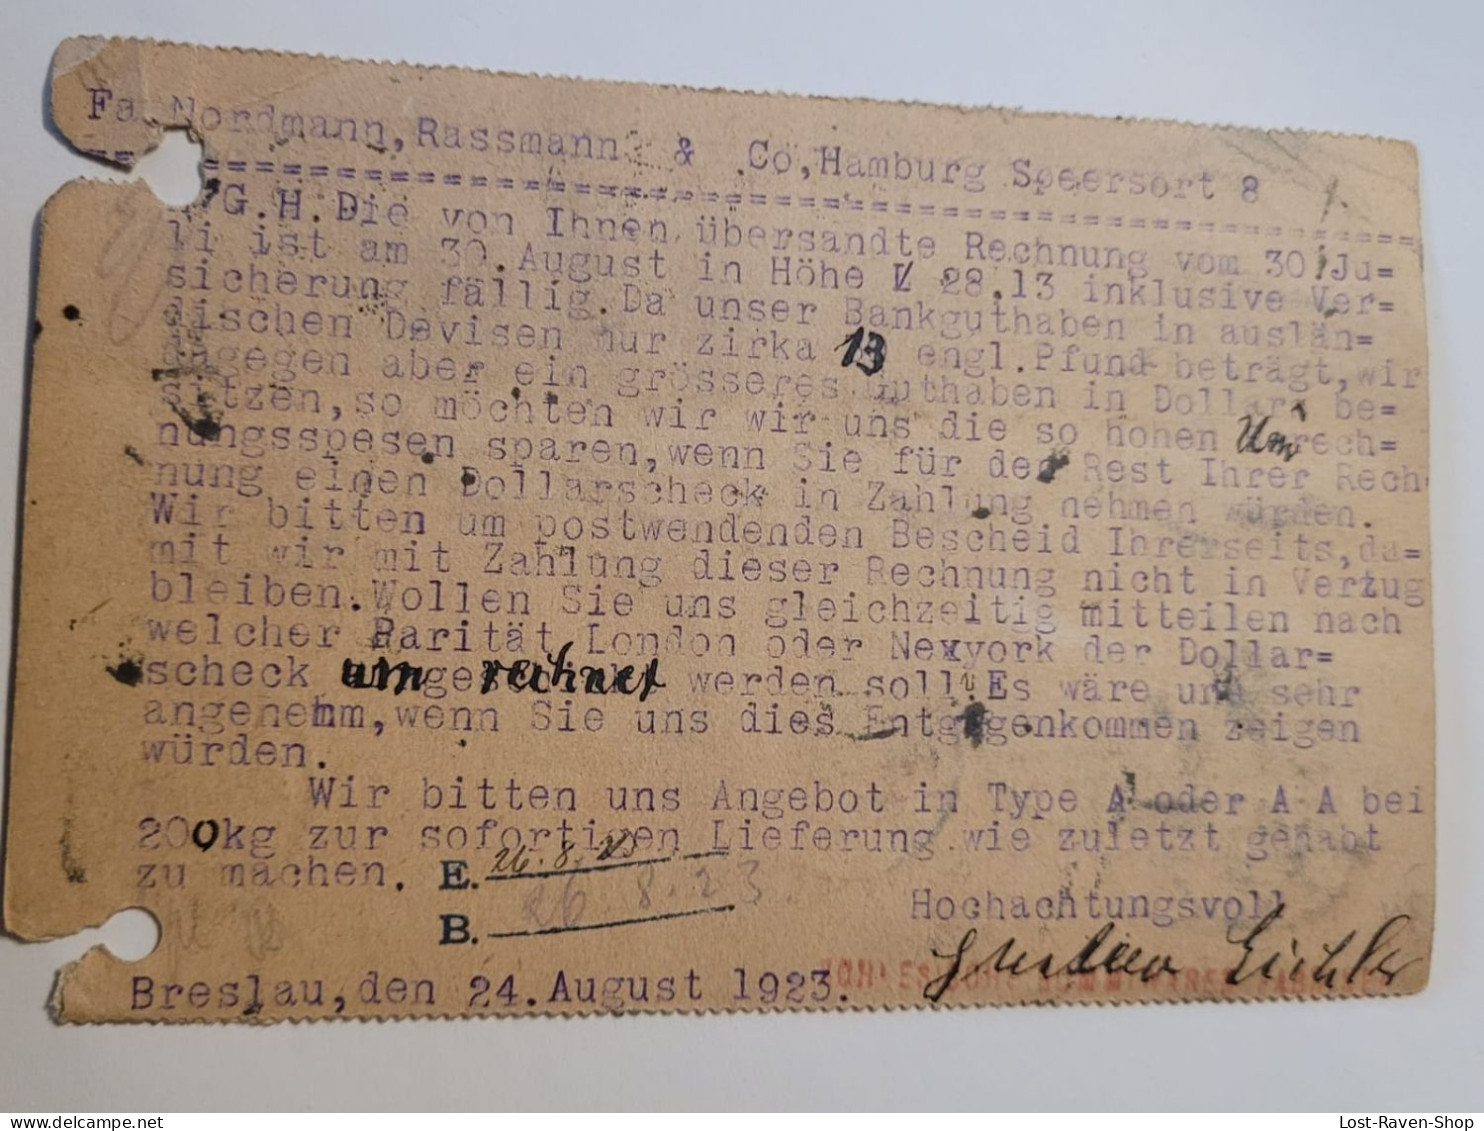 Fa. Nordmann, Rassmann & Co, Hamburg Speersort 8
G.H. Die von Ihnen übersandte Rechnung vom 30. Ju=
li ist am 30. August in Höhe £ 28.13 inklusive Ver=
sicherung fällig. Da unser Bankguthaben in auslän=
dischen Devisen nur zirka 13 engl. Pfund beträgt, wir
dagegen aber ein grösseres Guthaben in Dollars be=
sitzen, so möchten wir wir uns die so hohen Umrech=
nungsspesen sparen, wenn Sie für den Rest Ihrer Rech
nung einen Dollarscheck in Zahlung nehmen würden.
Wir bitten um postwendenden Bescheid Ihrerseits, da=
mit wir mit Zahlung dieser Rechnung nicht in Verzug
bleiben. Wollen Sie uns gleichzeitig mitteilen nach
welcher Parität London oder Nexyork der Dollar=
scheck umgerechnet werden soll. Es wäre uns sehr
angenehm, wenn Sie uns dies Entgegenkommen zeigen
würden.
Wir bitten uns Angebot in Type A oder A A bei
200kg zur sofortigen Lieferung wie zuletzt gehabt
zu machen.
E. 26.8.23
B. 26 8.23
Hochachtungsvoll
Gustav Eichler
Breslau, den 24. August 1923.
Lost-Raven-Shop